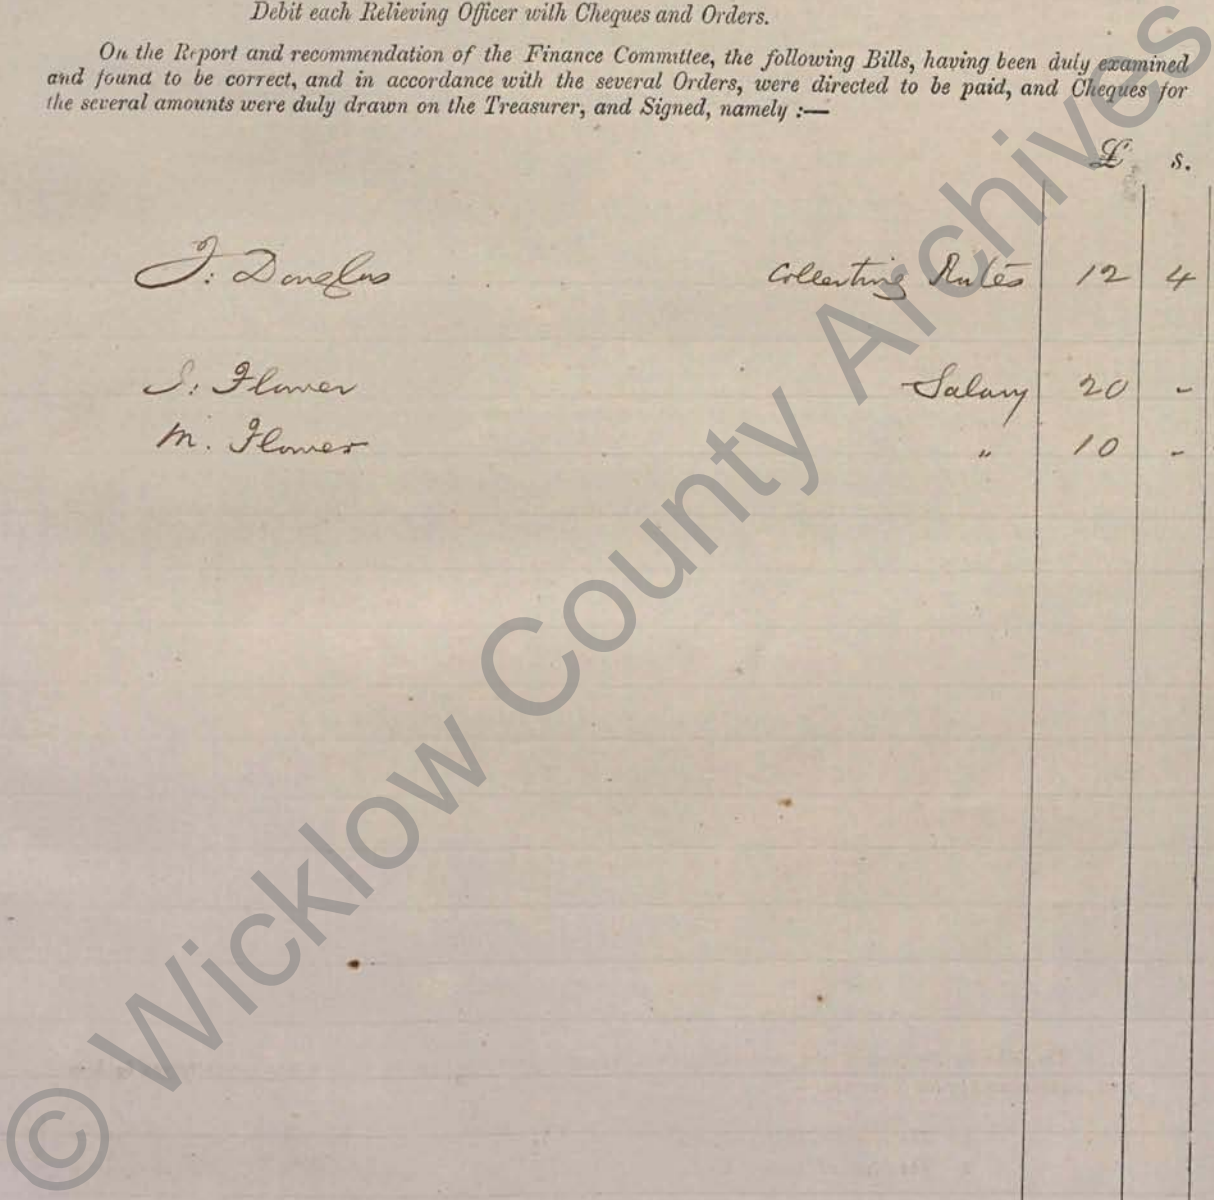 Debit each Relieving Officer with Cheques and Orders.
On the Report and recommendation of the Finance Committee, the following Bills, having been duly examined
and found to be correct, and in accordance with the several Orders, were directed to be paid, and Cheques for
the several amounts were duly drawn on the Treasurer, and Signed, namely :—
£ s.
J. Douglas Collecting Rates 12 4
S. Flower Salary 20 -
M. Flower " 10 -
© Wicklow County Archives